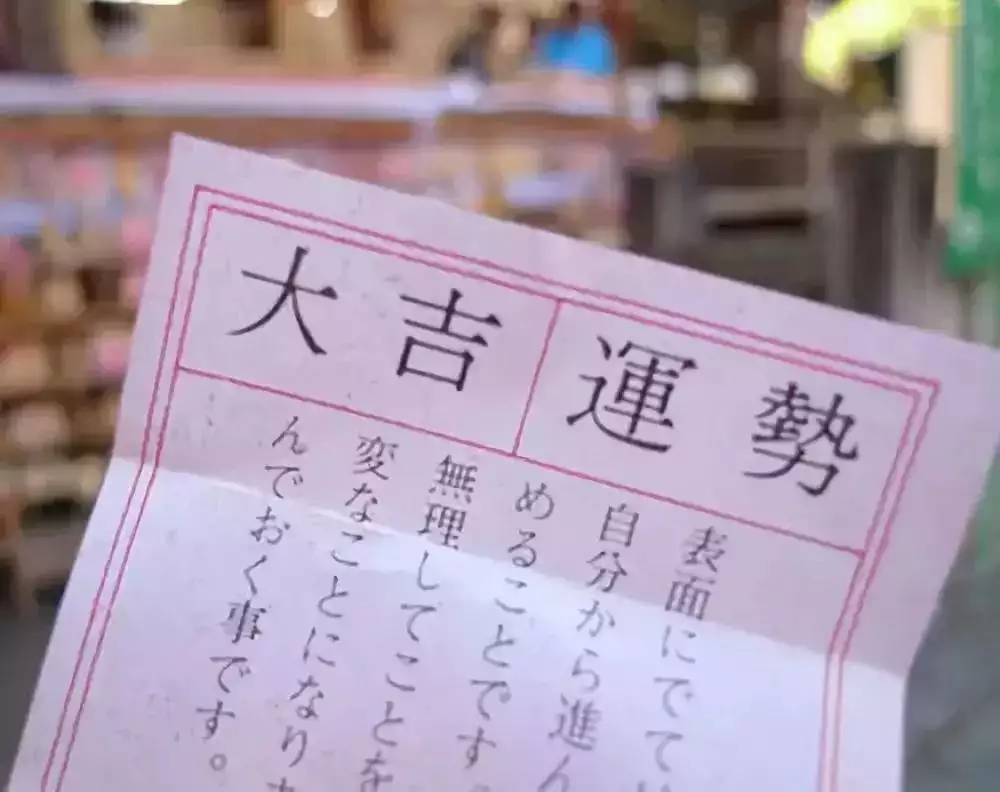 運勢
大吉
表面にでて
自分から進ん
めることです
無理してことを
変なことになり
んでおく事です。